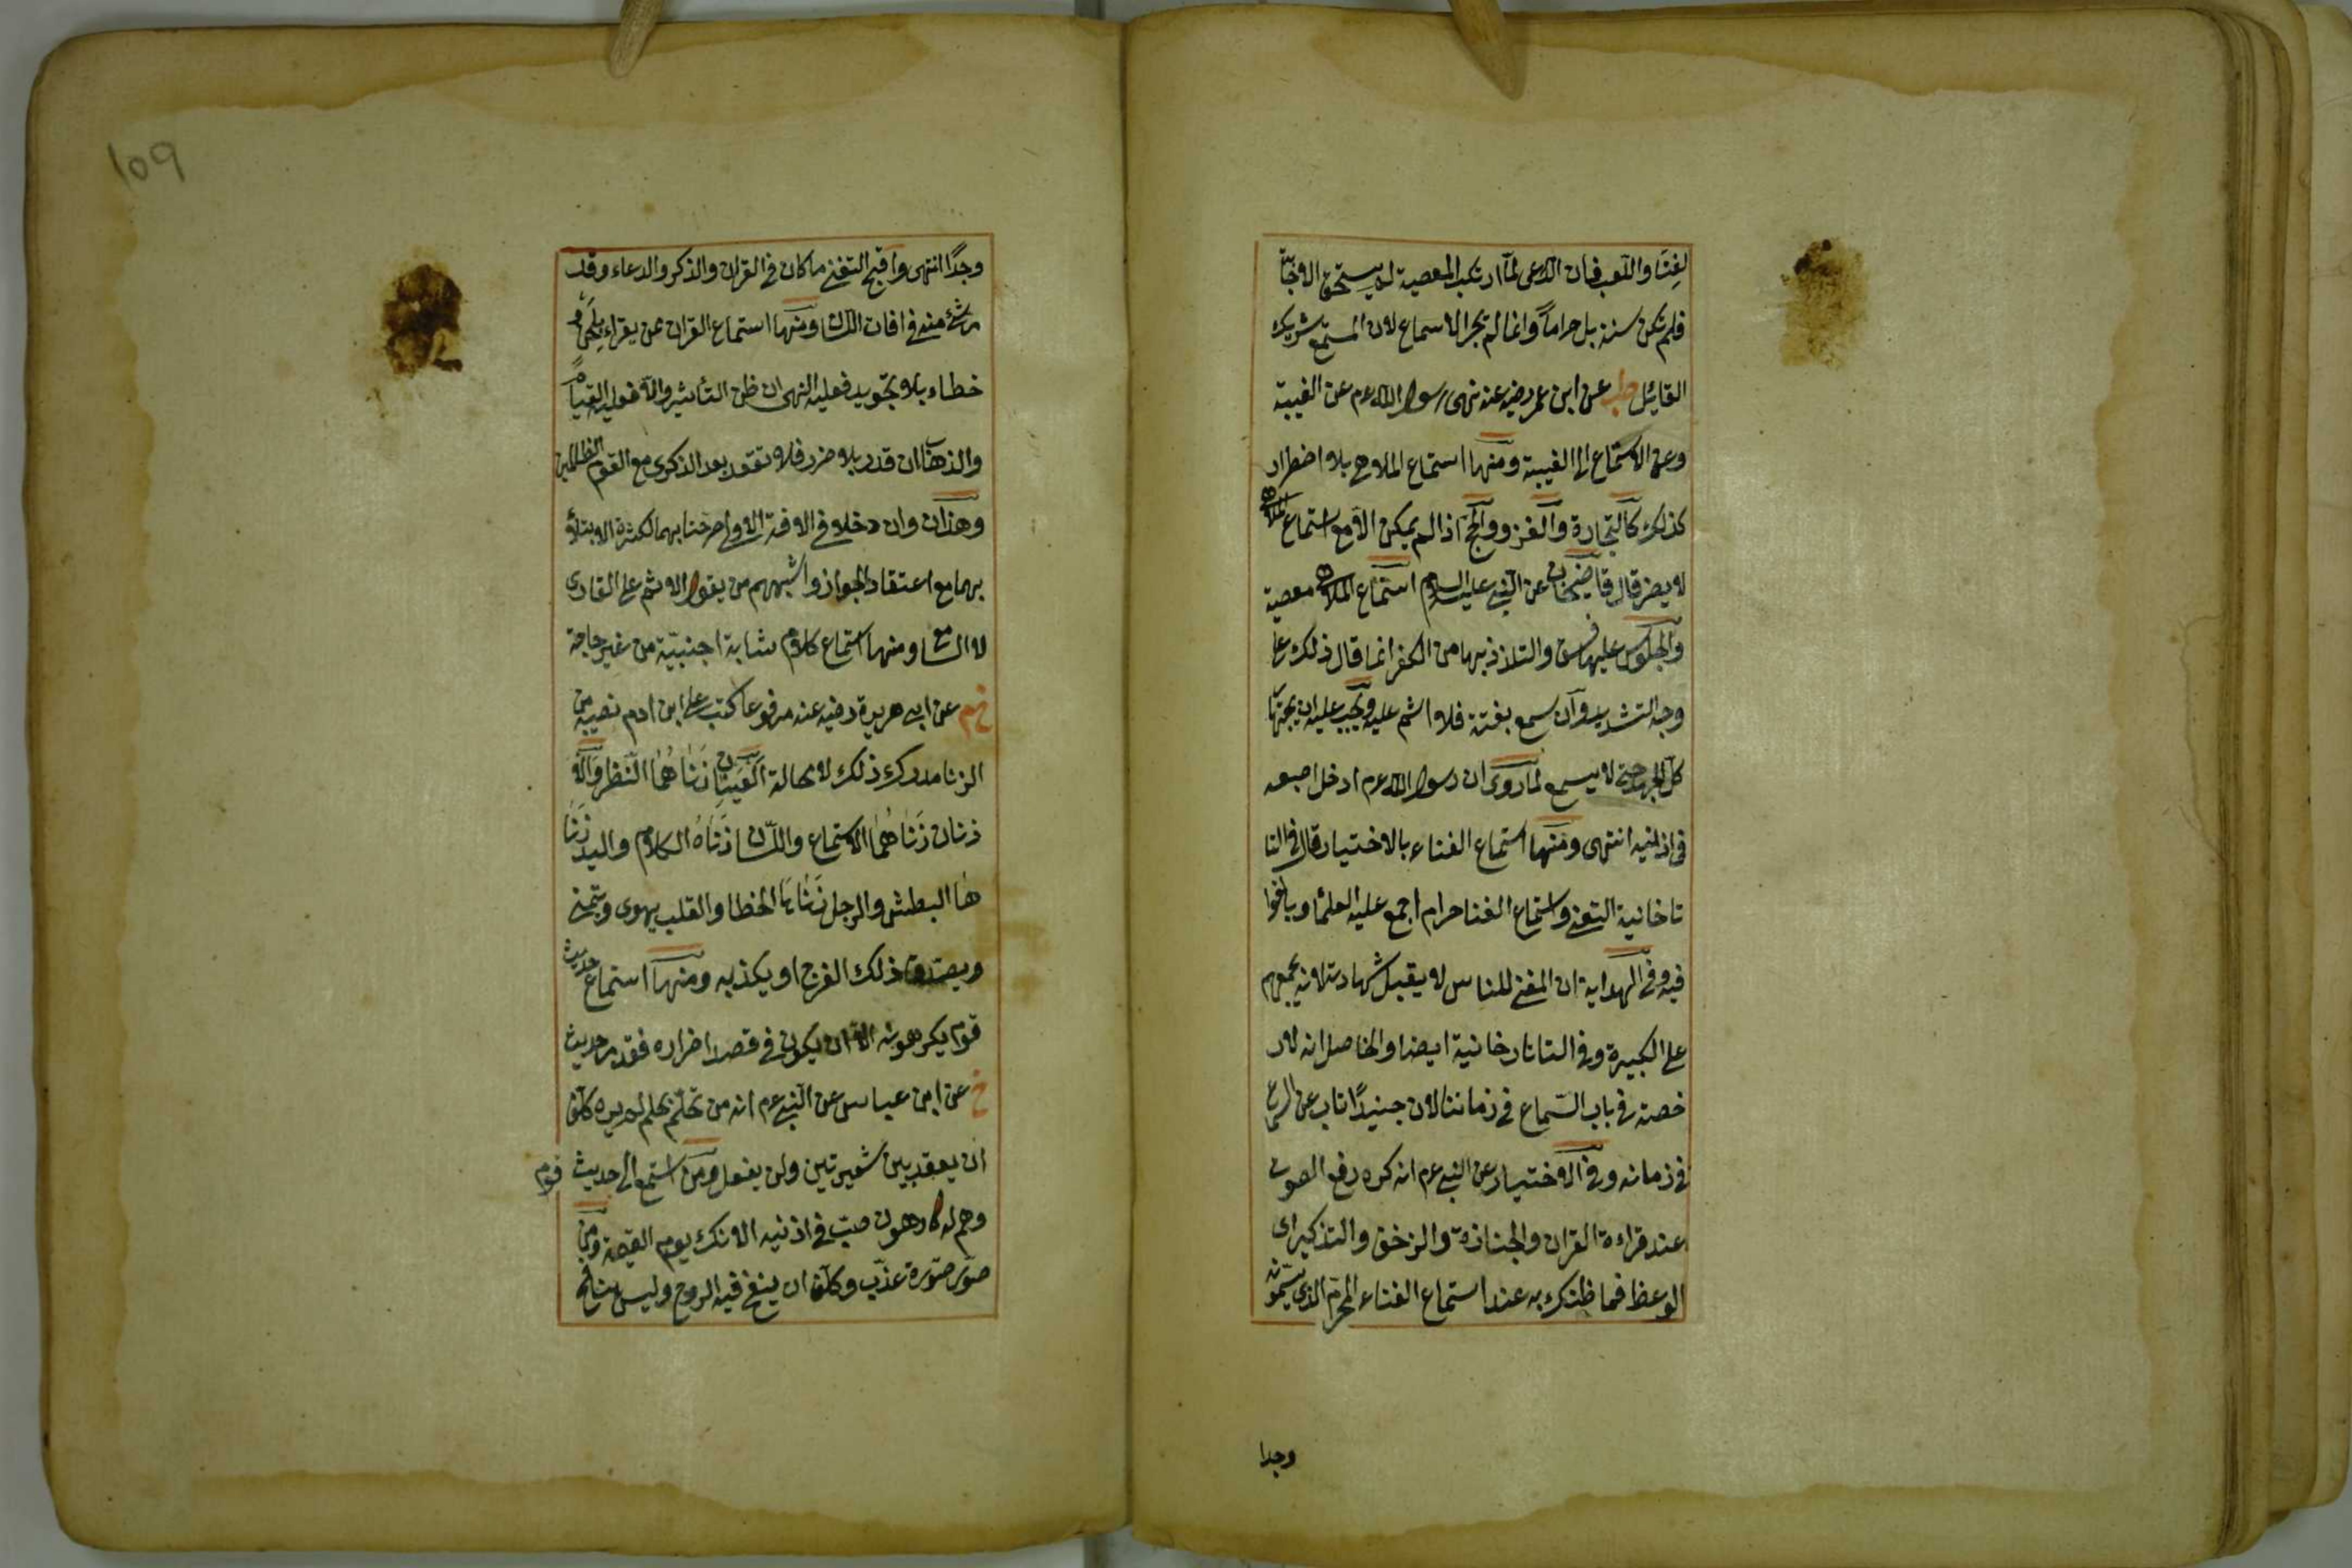 لغنا واللعب فان الداعى لما ارتكب المعصية لم يستحق الاجابة
فلم تكن سنة بل حراماً وانما لم يجز الاسماع لان المستمع شريك
القائل طب عن ابن عمر رضيه عنه نهى رسول الله عم عن الغيبة
وعن الاستماع الى الغيبة ومنها استماع الملاهى بلا اضطرار
كذلك كالتجارة والغزو والحج اذا لم يمكن الا مع استماع الملاهى
لا يضر قال قاضيخان عن النبى عليه السلام استماع الملاهى معصية
والجلوس عليها فسق والتلذذ بها من الكفر انما قال ذلك على
وجه التشديد وان سمع بغتة فلا اثم عليه ويجب عليه ان يجتهد
كل الجهد حتى لا يسمع لما روى ان رسول الله عم ادخل اصبعه
فى اذنيه انتهى ومنها استماع الغناء بالاختيار قال فى التا
تاخانية التغنى واستماع الغنا حرام اجمع عليه العلماء وبالغوا
فيه وفى الهداية ان المغنى للناس لا يقبل شهادته لانه يجمعهم
على الكبيرة وفى التاتارخانية ايضا والحاصل انه لا ر
خصة فى باب السماع فى زماننا لان جنيدًا تاب عن السماع
فى زمانه وفى الاختيار عن النبى عم انه كره رفع الصوت
عند قراءة القران والجنازة والزحف والتذكير اى
الوعظ فما ظنك به عند استماع الغناء المحرم الذى يسمونه
وجدا
109
وجدًا انتهى واقبح التغنى ما كان فى القران والذكر والدعاء وقد
مر شئ منه فى افات اللسان ومنها استماع القران عمن يقراء بلحن و
خطاء بلا تجويد فعليه النهى ان ظن التأثير والا فعليه القيام
والذهاب ان قدر بلا ضرر فلا تقعد بعد الذكرى مع القوم الظالمين
وهذان وان دخلا فى الافة الاولى صرحنا بهما لكثرة الابتلاء
بهما مع اعتقاد الجواز واشبههم من يقول الاثم على القارى
لا السامع ومنها استماع كلام شابة اجنبيّة من غير حاجة
خ م عن ابى هريرة رضيه عنه مرفوعا كتب على ابن ادم نصيبه من
الزنا مدرك ذلك لا محالة العَينان زناهُمَا النّظر والا
ذنان زناهُما الاستماع واللسان زناهُ الكلام واليد زنا
ها البطش والرجل زناهَا الخطا والقلب يهوى ويتمنى
ويصدق ذلك الفرج او يكذبه ومنها استماع حديث
قوم يكرهونه الا ان يكون فى قصد اضراره فقد مر حديث
خ عن ابن عباس عن النبى عم انه من تحلّم بحلم لم يره كلّف
ان يعقد بين شعيرتين ولن يفعل ومن استمع الى حديث قوم
وهم له كارهون صبّ فى اذنيه الانك يوم القيمة ومن
صوّر صورة عذّب وكلّف ان ينفخ فيه الروح وليس بنافخ